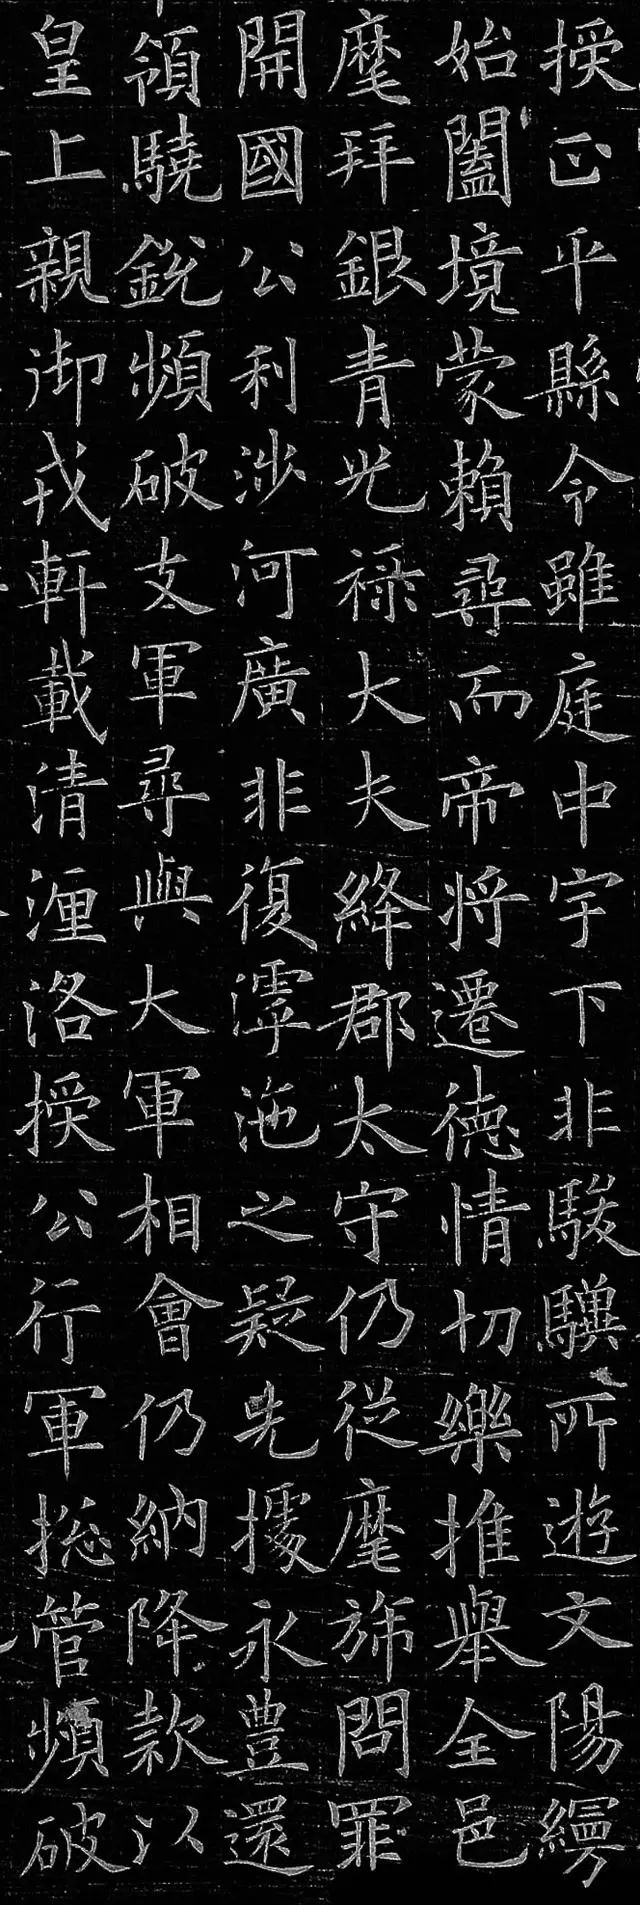 授正平縣令雖庭中宇下非駿驥所遊文陽
始闔境蒙賴尋而帝將遷德情切樂推舉全邑
麾拜銀青光祿大夫絳郡太守仍從麾旆問罪
開國公利涉河廣非復滹沱之疑先據永豊還
領驍銳頻破支軍尋與大軍相會仍納降款以
皇上親御戎軒載清瀍洛授公行軍揔管頻破